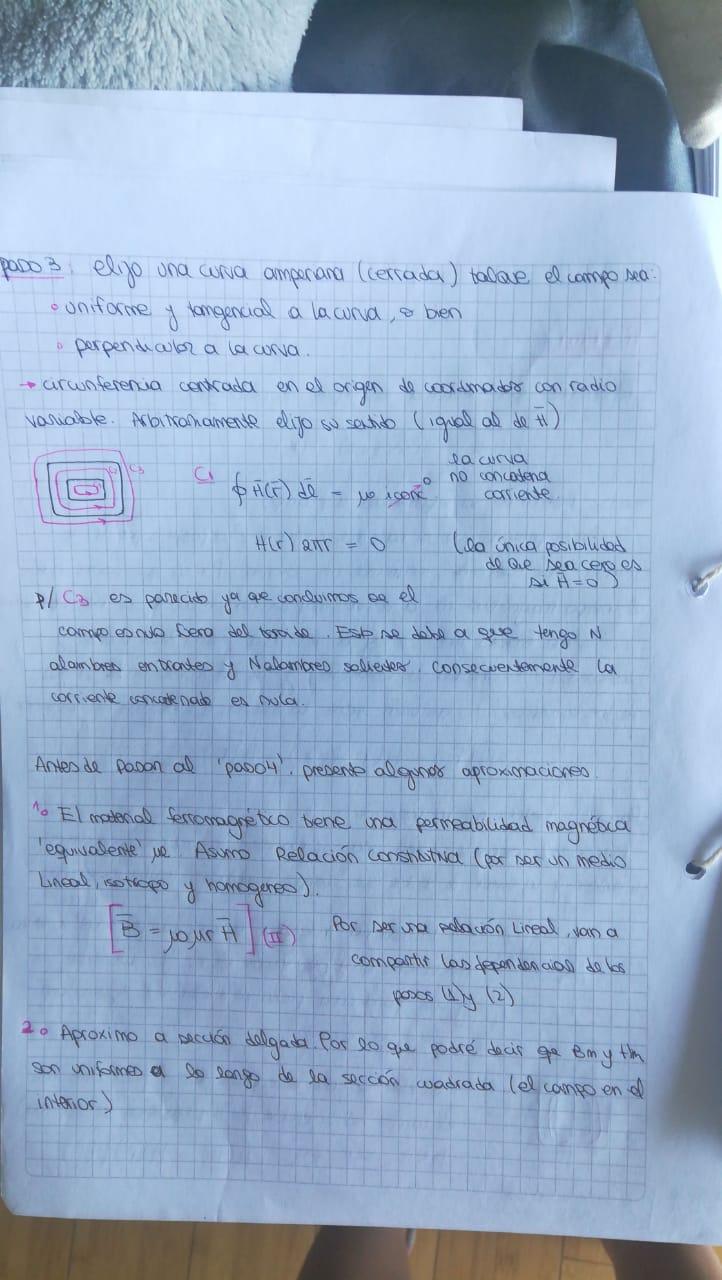 paso 3: elijo una curva amperiana (cerrada) talque el campo sea:
° uniforme y tangencial a la curva, o bien
° perpendicular a la curva.
→ circunferencia centrada en el origen de coordenadas con radio
variable. Arbitrariamente elijo su sentido (igual al de H̄)
C3
C1 ∮ H̄(r̄) dl̄ = μo iconc 0 la curva
no concatena
corriente.
H(r) 2πr = 0 (la única posibilidad
de que sea cero es
si H̄=0)
p/ C3 es parecido ya que concluimos qe el
campo es nulo fuera del toroide. Esto se debe a que tengo N
alambres entrantes y N alambres salientes, consecuentemente la
corriente concatenada es nula.
Antes de pasar al 'paso4', presento algunas aproximaciones.
1° El material ferromagnético tiene una permeabilidad magnética
'equivalente' μr Asumo Relación constitutiva (por ser un medio
Lineal, isotropo y homogeneo).
[B̄ = μo μr H̄] (II) Por ser una relación Lineal, van a
compartir las dependencias de los
pasos (1) y (2)
2° Aproximo a sección delgada. Por lo que podré decir qe Bm y Hm
son uniformes a lo largo de la sección cuadrada (el campo en el
interior)